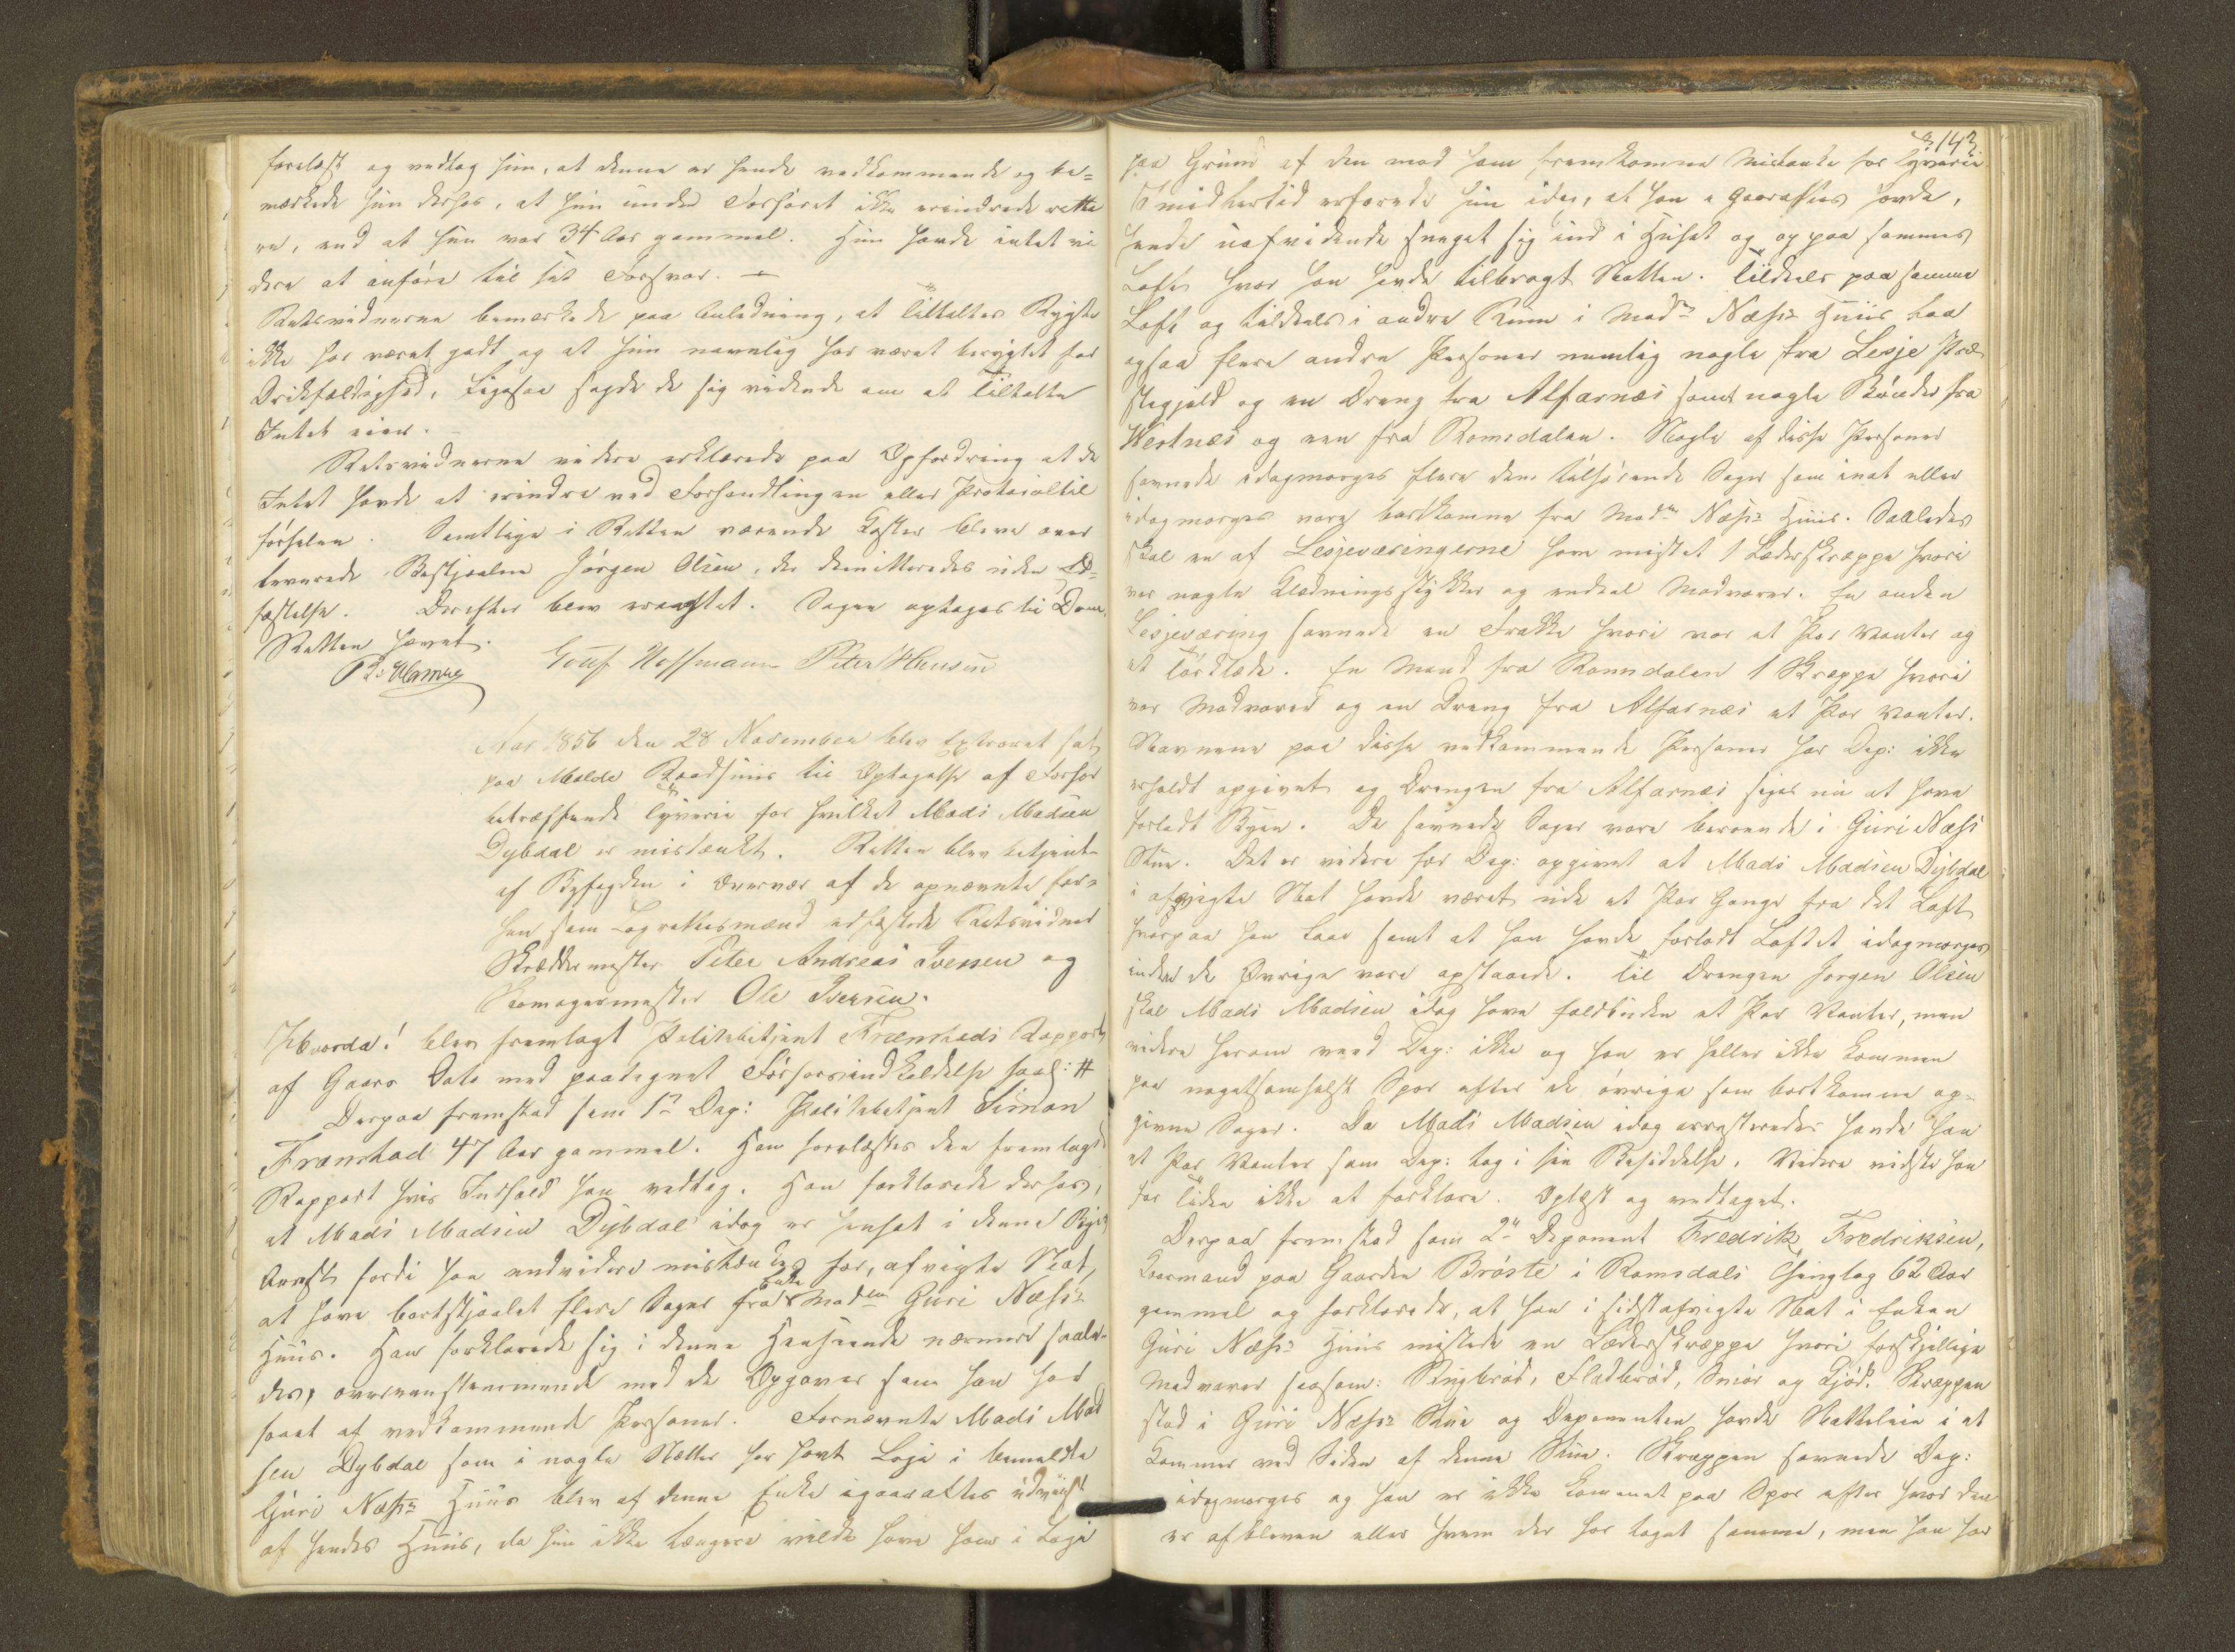 forelæst og vedtog hun, at denne er hende vedkommende og be=
mærkede hun derhos, at hun under Forhøret ikke erindrede rette
re, end at hun var 34 Aar gammel. Hun havde intet vi
dere at anføre til sit Forsvar. —
Retsvidnerne bemærkede paa Anledning, at Tiltaltes Rygte
ikke har været godt og at hun navnlig har været berygtet for
Drikfældighed, ligesaa sagde de sig vidende om at Tiltalte
Intet eier. —
Retsvidnerne videre erklærede paa Opfordring at de
Intet havde at erindre ved Forhandlingen eller Protocoltil
førselen. Samtlige i Retten værende Koster bleve over
leverede Bestjaalne Jörgen Olsen, der demitteredes uden Ed=
fæstelse. Derefter blev eragtet. Sagen optages til Dom.
Retten hævet.
Gouf Hoffmann Peter Hensen
Aar 1856 den 28 November blev Extraret sat
paa Molde Raadhuus til Optagelse af Forhør
betræffende Tyverie for hvilket Mads Madsen
Dybdal er mistænkt. Retten blev betjent
af Byfogden i Overvær af de opnævnte for=
hen som Lagrettesmænd edfæstede Retsvidner
Skræddermester Peter Andreas Ivessen og
Skomagermester Ole Iversen.
Hvorda! blev fremlagt Politibetjent Frænstads Rapport
af Gaars Dato med paategnet Forhørsindkaldelse saal: #
Derpaa fremstod som 1ste Dep: Politibetjent Simon
Frænstad 47 Aar gammel. Han forelæstes den fremlagte
Rapport hvis Indhold han vedtog. Han forklarede derhos,
at Mads Madsen Dybdal idag er hensat i denne Byes
Arrest fordi han endvidere mistænkes for, afvigte Nat,
at have bortstjaalet flere Sager fra Enke Madm Guri Næss's
Huus. Han forklarede sig i denne Henseende nærmere saale=
des, overeensstemmende med de Opgaver som han har
faaet af vedkommende Personer. Fornævnte Mads Mad
sen Dybdal som i nogle Nætter har havt Logi i bemeldte
Guri Næss's Huus blev af denne Enke igaaraftes udviist
af hendes Huus, da hun ikke længere vilde have ham i Logi
143
paa Grund af den mod ham fremkomne Mistanke for Tyverie
Imidlertid erfarede hun idag, at han igaaraftes havde,
hende uafvidende sneget sig ind i Huset og op paa sammes
Loft hvor han havde tilbragt Natten. Tildeels paa samme
Loft og tildeels i andre Rum i Madm Næss's Huus laa
ogsaa flere andre Personer nemlig nogle fra Lesje Præ
stegjeld og en Dreng fra Alfarnæs samt nogle Bönder fra
Vestnæs og een fra Romsdalen. Nogle af disse Personer
savnede idagmorges flere dem tilhörende Sager som inat eller
idagmorges vare bortkomne fra Madm Næss's Huus. Saaledes
skal en af Lesjeværingerne have mistet 1 Læderskreppe hvori
var nogle Klædningsstykker og endeel Madvarer. En anden
Lesjeværing savnede en Frakke hvori var et Par Vanter og
et Törklæde. En Mand fra Romsdalen 1 Skreppe hvori
var Madvarer og en Dreng fra Alfarnæs et Par Vanter.
Navnene paa disse vedkommende Personer har Dep: ikke
erholdt opgivet og Drengen fra Alfarnæs siges nu at have
forladt Byen. De savnede Sager vare beroende i Guri Næss
Stue. Det er videre for Dep: opgivet at Mads Madsen Dybdal
i afvigte Nat havde været ude et Par Gange fra det Loft
hvorpaa han laae samt at han havde forladt Loftet idagmorges
inden de Øvrige vare opstaaede. Til Drengen Jorgen Olsen
skal Mads Madsen idag have falbuden et Par Vanter, men
videre herom veed Dep: ikke og han er heller ikke kommen
paa nogetsomhelst Spor efter de övrige som bortkomne op=
givne Sager. Da Mads Madsen idag arresteredes havde han
et Par Vanter som Dep: tog i sin Besiddelse. Videre vidste han
for Tiden ikke at forklare. Oplæst og vedtaget.
Derpaa fremstod som 2den Deponent Fredrik Fredriksen,
Kaarmand paa Gaarden Bröste i Romsdals Thinglag 62 Aar
gammel og forklarede, at han i sidstafvigte Nat i Enken
Guri Næss's Huus mistede en Læderskreppe hvori forskjellige
Madvarer saasom: Rugbröd, Fladbröd, Smör og Kjöd. Skreppen
stod i Guri Næss's Stue og Deponenten havde Natteleie i et
Kammer ved Siden af denne Stue. Skreppen savnede Dep:
idagmorges og han er ikke kommet paa Spor efter hvor den
er afbleven eller hvem der har taget samme, men han har